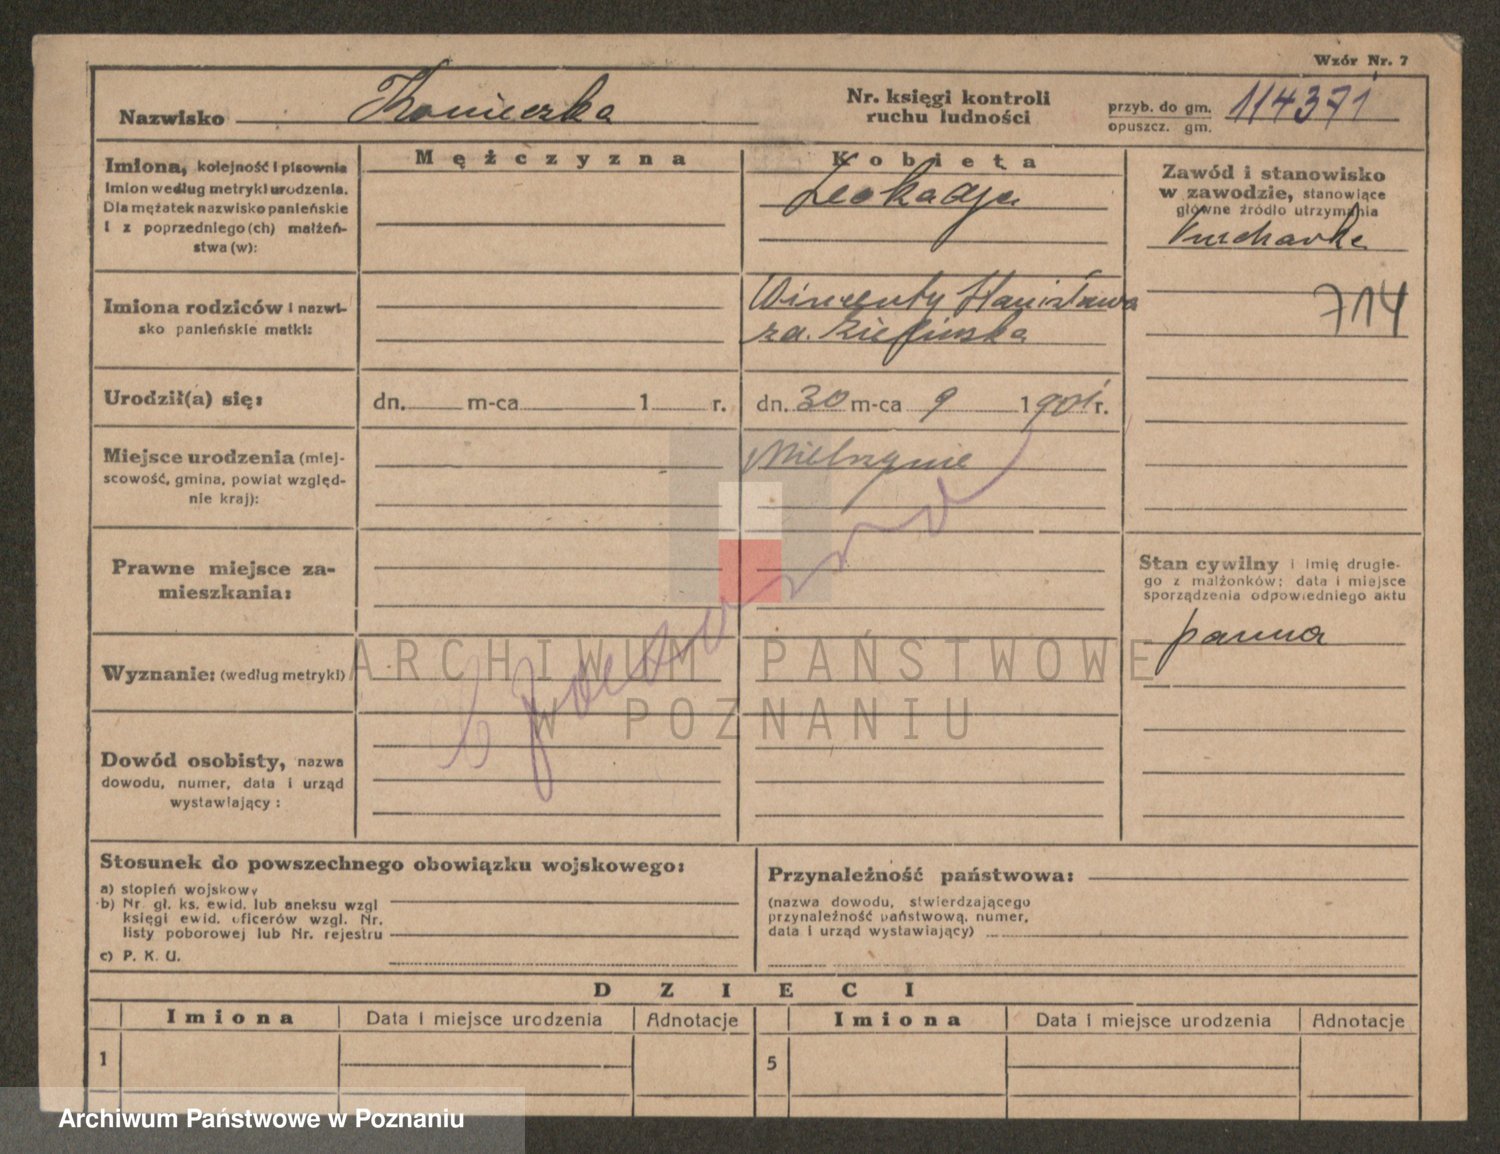 Wzór Nr. 7
Nazwisko Konieczka
Nr. księgi kontroli
ruchu ludności
przyb. do gm.
opuszcz. gm.
114371
Imiona, kolejność i pisownia
imion według metryki urodzenia.
Dla mężatek nazwisko panieńskie
i z poprzedniego(ch) małżeń-
stwa(w):
Mężczyzna
Kobieta
Leokadja
Zawód i stanowisko
w zawodzie, stanowiące
główne źródło utrzymania
Kucharka
714
Imiona rodziców i nazwi-
sko panieńskie matki:
Wincenty Stanisława
zd. Zielińska
Urodził(a) się:
dn. m-ca 1 r.
dn. 30 m-ca 9 1901 r.
Miejsce urodzenia (miej-
scowość, gmina, powiat względ-
nie kraj):
Mielżynie
Prawne miejsce za-
mieszkania:
Stan cywilny i imię drugie-
go z małżonków; data i miejsce
sporządzenia odpowiedniego aktu
panna
Wyznanie: (według metryki)
ARCHIWUM PAŃSTWOWE
W POZNANIU
Dowód osobisty, nazwa
dowodu, numer, data i urząd
wystawiający:
Stosunek do powszechnego obowiązku wojskowego:
a) stopień wojskowy
b) Nr. gł. ks. ewid. lub aneksu wzgl
księgi ewid. oficerów wzgl. Nr.
listy poborowej lub Nr. rejestru
c) P. K. U.
Przynależność państwowa:
(nazwa dowodu, stwierdzającego
przynależność państwową, numer,
data i urząd wystawiający)
DZIECI
Imiona Data i miejsce urodzenia Adnotacje Imiona Data i miejsce urodzenia Adnotacje
1 5
Archiwum Państwowe w Poznaniu